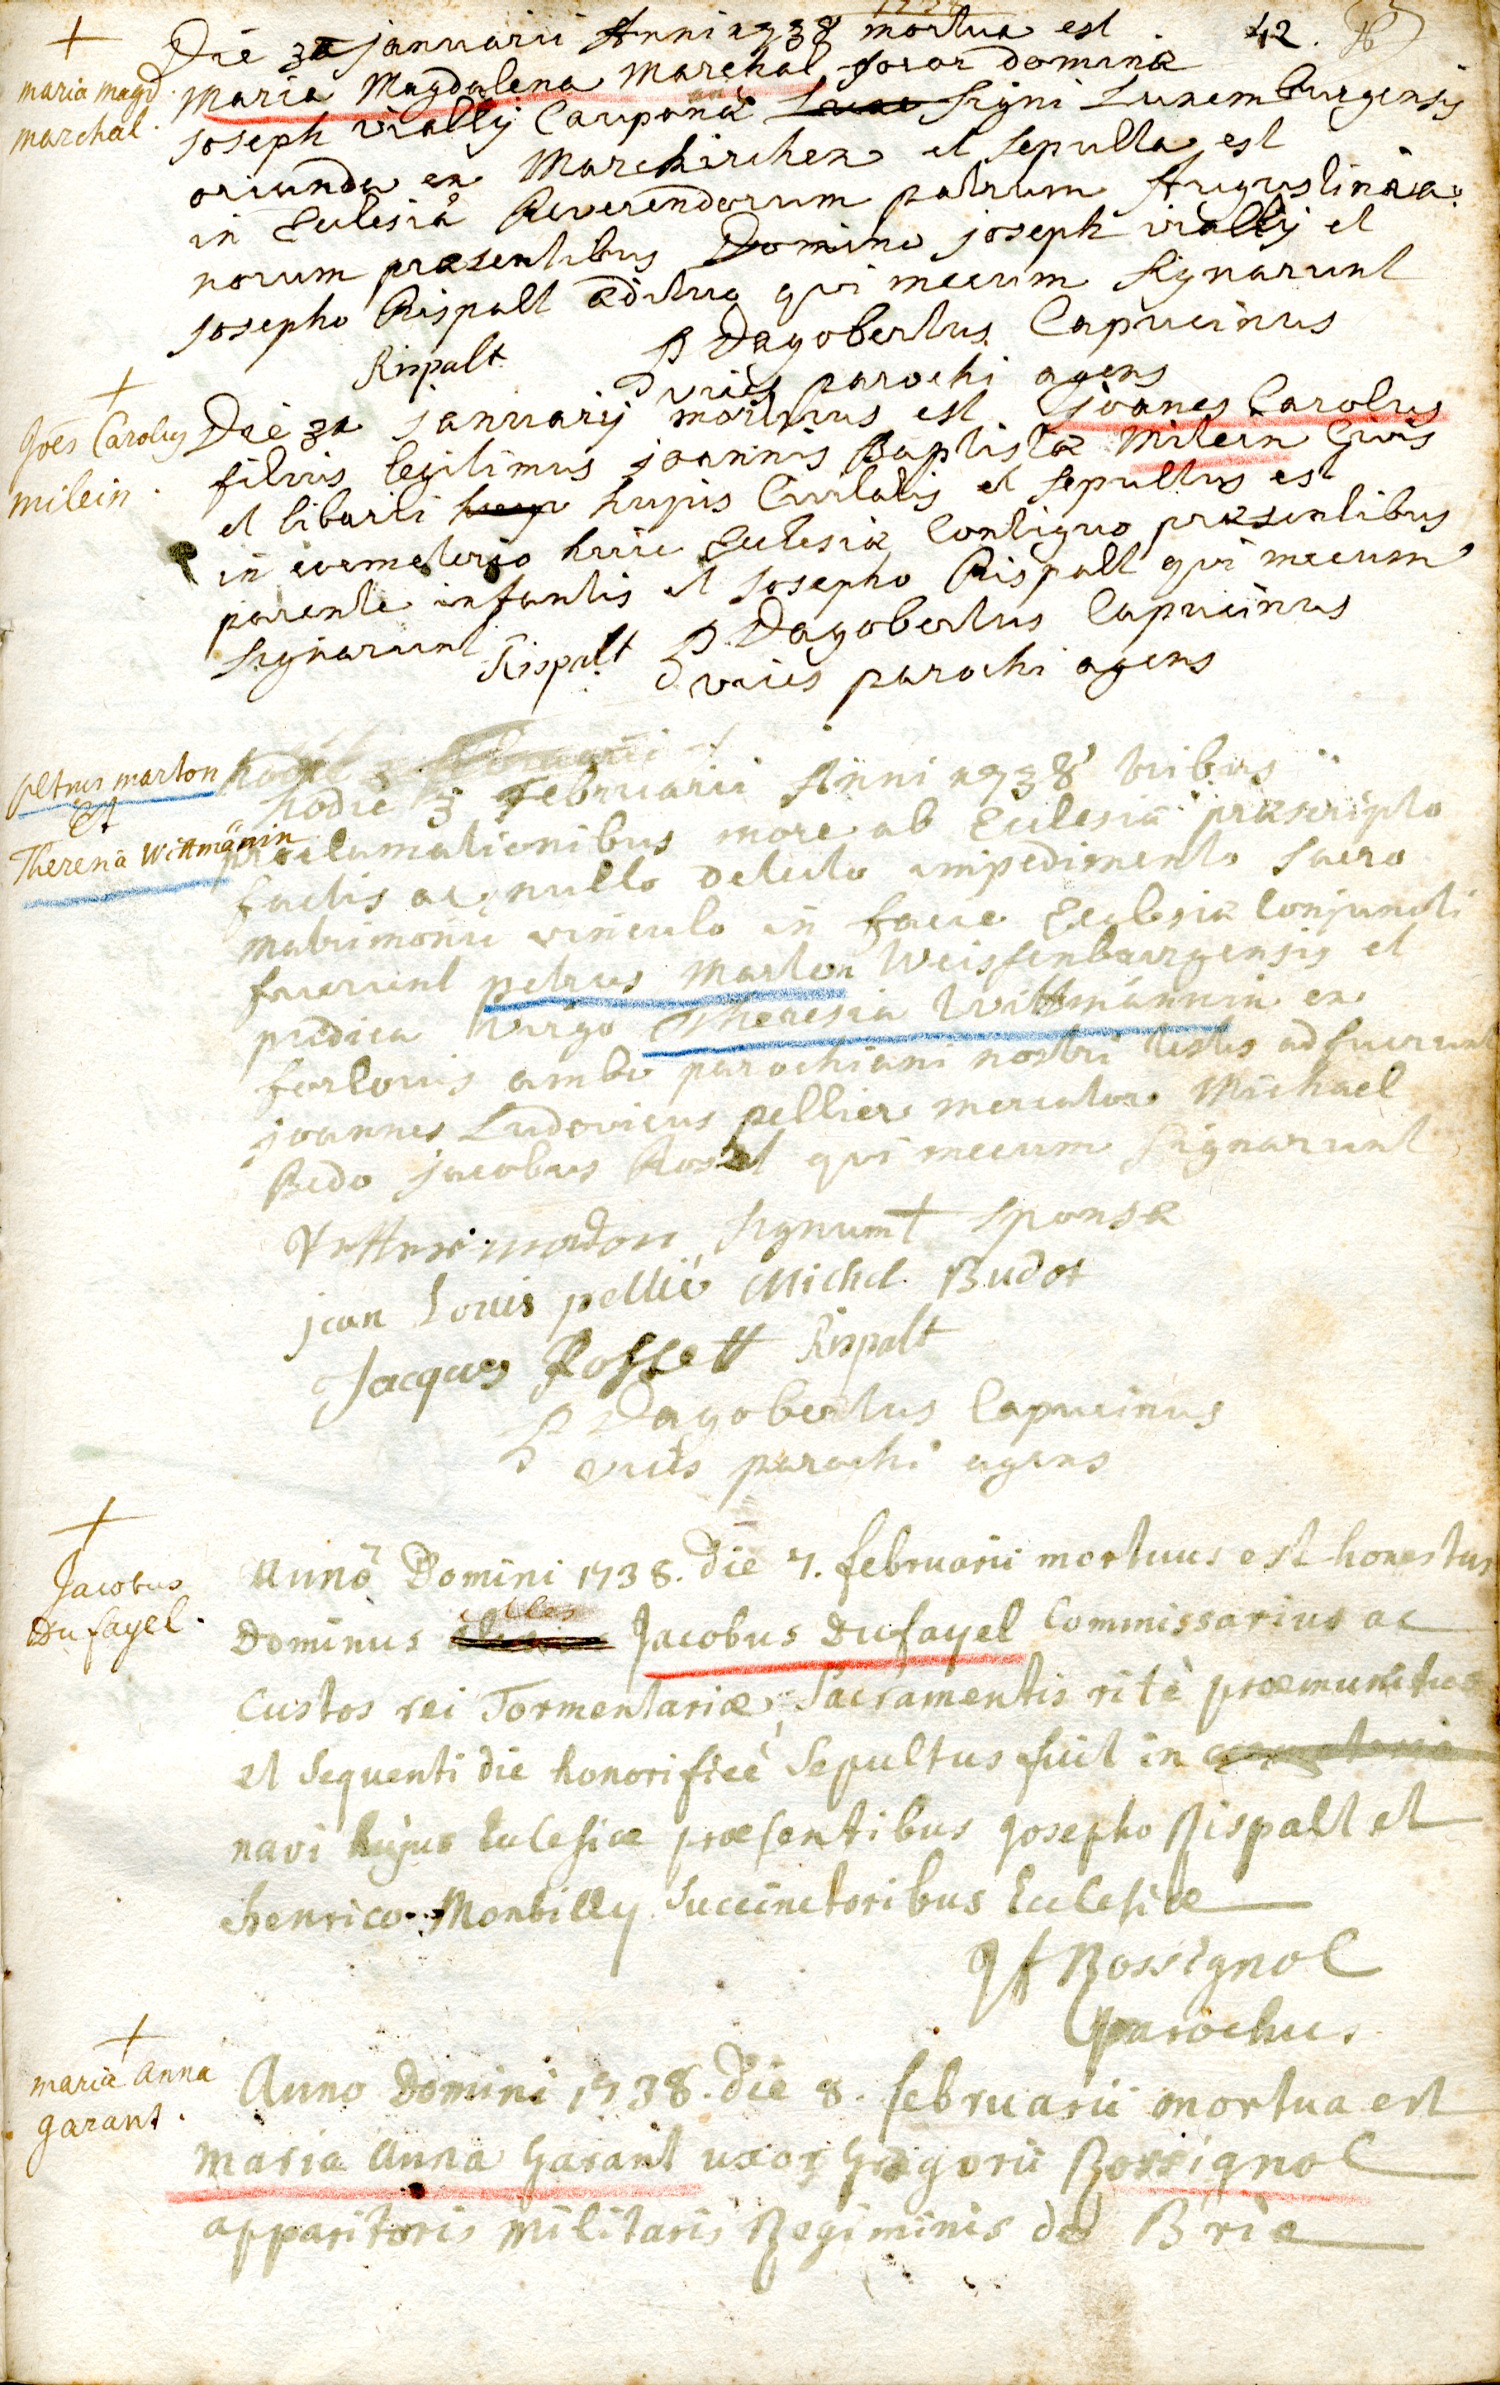 42.
maria magd.
marchal.
Die 31 januarii Anni 1738 mortua est
Maria Magdalena Marchal soror dominæ
joseph vially Cauponæ signi Luxemburgensis
oriunda ex Marckirchen et sepulta est
in Eclesiâ Reverendorum patrum Augustinia-
norum præsentibus Domino joseph vially et
josepho Rispalt ædituo qui mecum signarunt
Rispalt P Dagobertus Capucinus
vices parochi agens
Joēs Carolus
milein.
Die 31 januarij mortuus est joānes Carolus
filius legitimus joannis Baptistæ Milein Civis
et libarii hujus Civitatis et sepultus est
in coemeterio huic Eclesiæ Contiguo præsentibus
parente infantis et josepho Rispalt qui mecum
signarunt Rispalt P Dagobertus Capucinus
vices parochi agens
petrus marton
et
Therena Wittmänin
hodie 3
hodie 3 Februarii Anni 1738 tribus
proclamationibus more ab Eclesiâ præscripto
factis ac nullo detecto impedimento sacro
matrimonii vinculo in facie Eclesiæ Conjuncti
fuerunt petrus Marton Weissenburgensis et
pudica virgo Theresia Wittmannin ex
forlouis ambo parochiani nostri testes adfuerunt
joannes Ludovicus pellier mercator Michael
Bedo jacobus Rosset qui mecum signarunt
signum + sponsæ
jean Louis pellié Michel Budot
Jacques Rossett Rispalt
P Dagobertus Capucinus
vices parochi agens
Jacobus
Dufayel.
Anno Domini 1738. die 7. februarii mortuus est honestus
Dominus Jacobus Dufayel Commissarius ac
Custos rei Tormentariæ, Sacramentis ritè præmunitus
et sequenti die honorificè sepultus fuit in coemeterio
navi hujus Eclesiæ præsentibus Josepho Rispalt et
henrico Monbilly succinctoribus Ecclesiæ
JF Rossignol
parochus
maria anna
garant.
Anno Domini 1738. die 8. februarii mortua est
Maria Anna Garant uxor Gregorii Rossignol
apparitoris militaris Regiminis de Brie